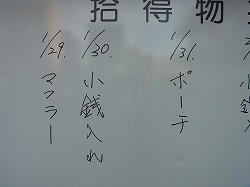 拾得物
1/31. ポーチ
1/30. 小銭入れ
1/29. マフラー